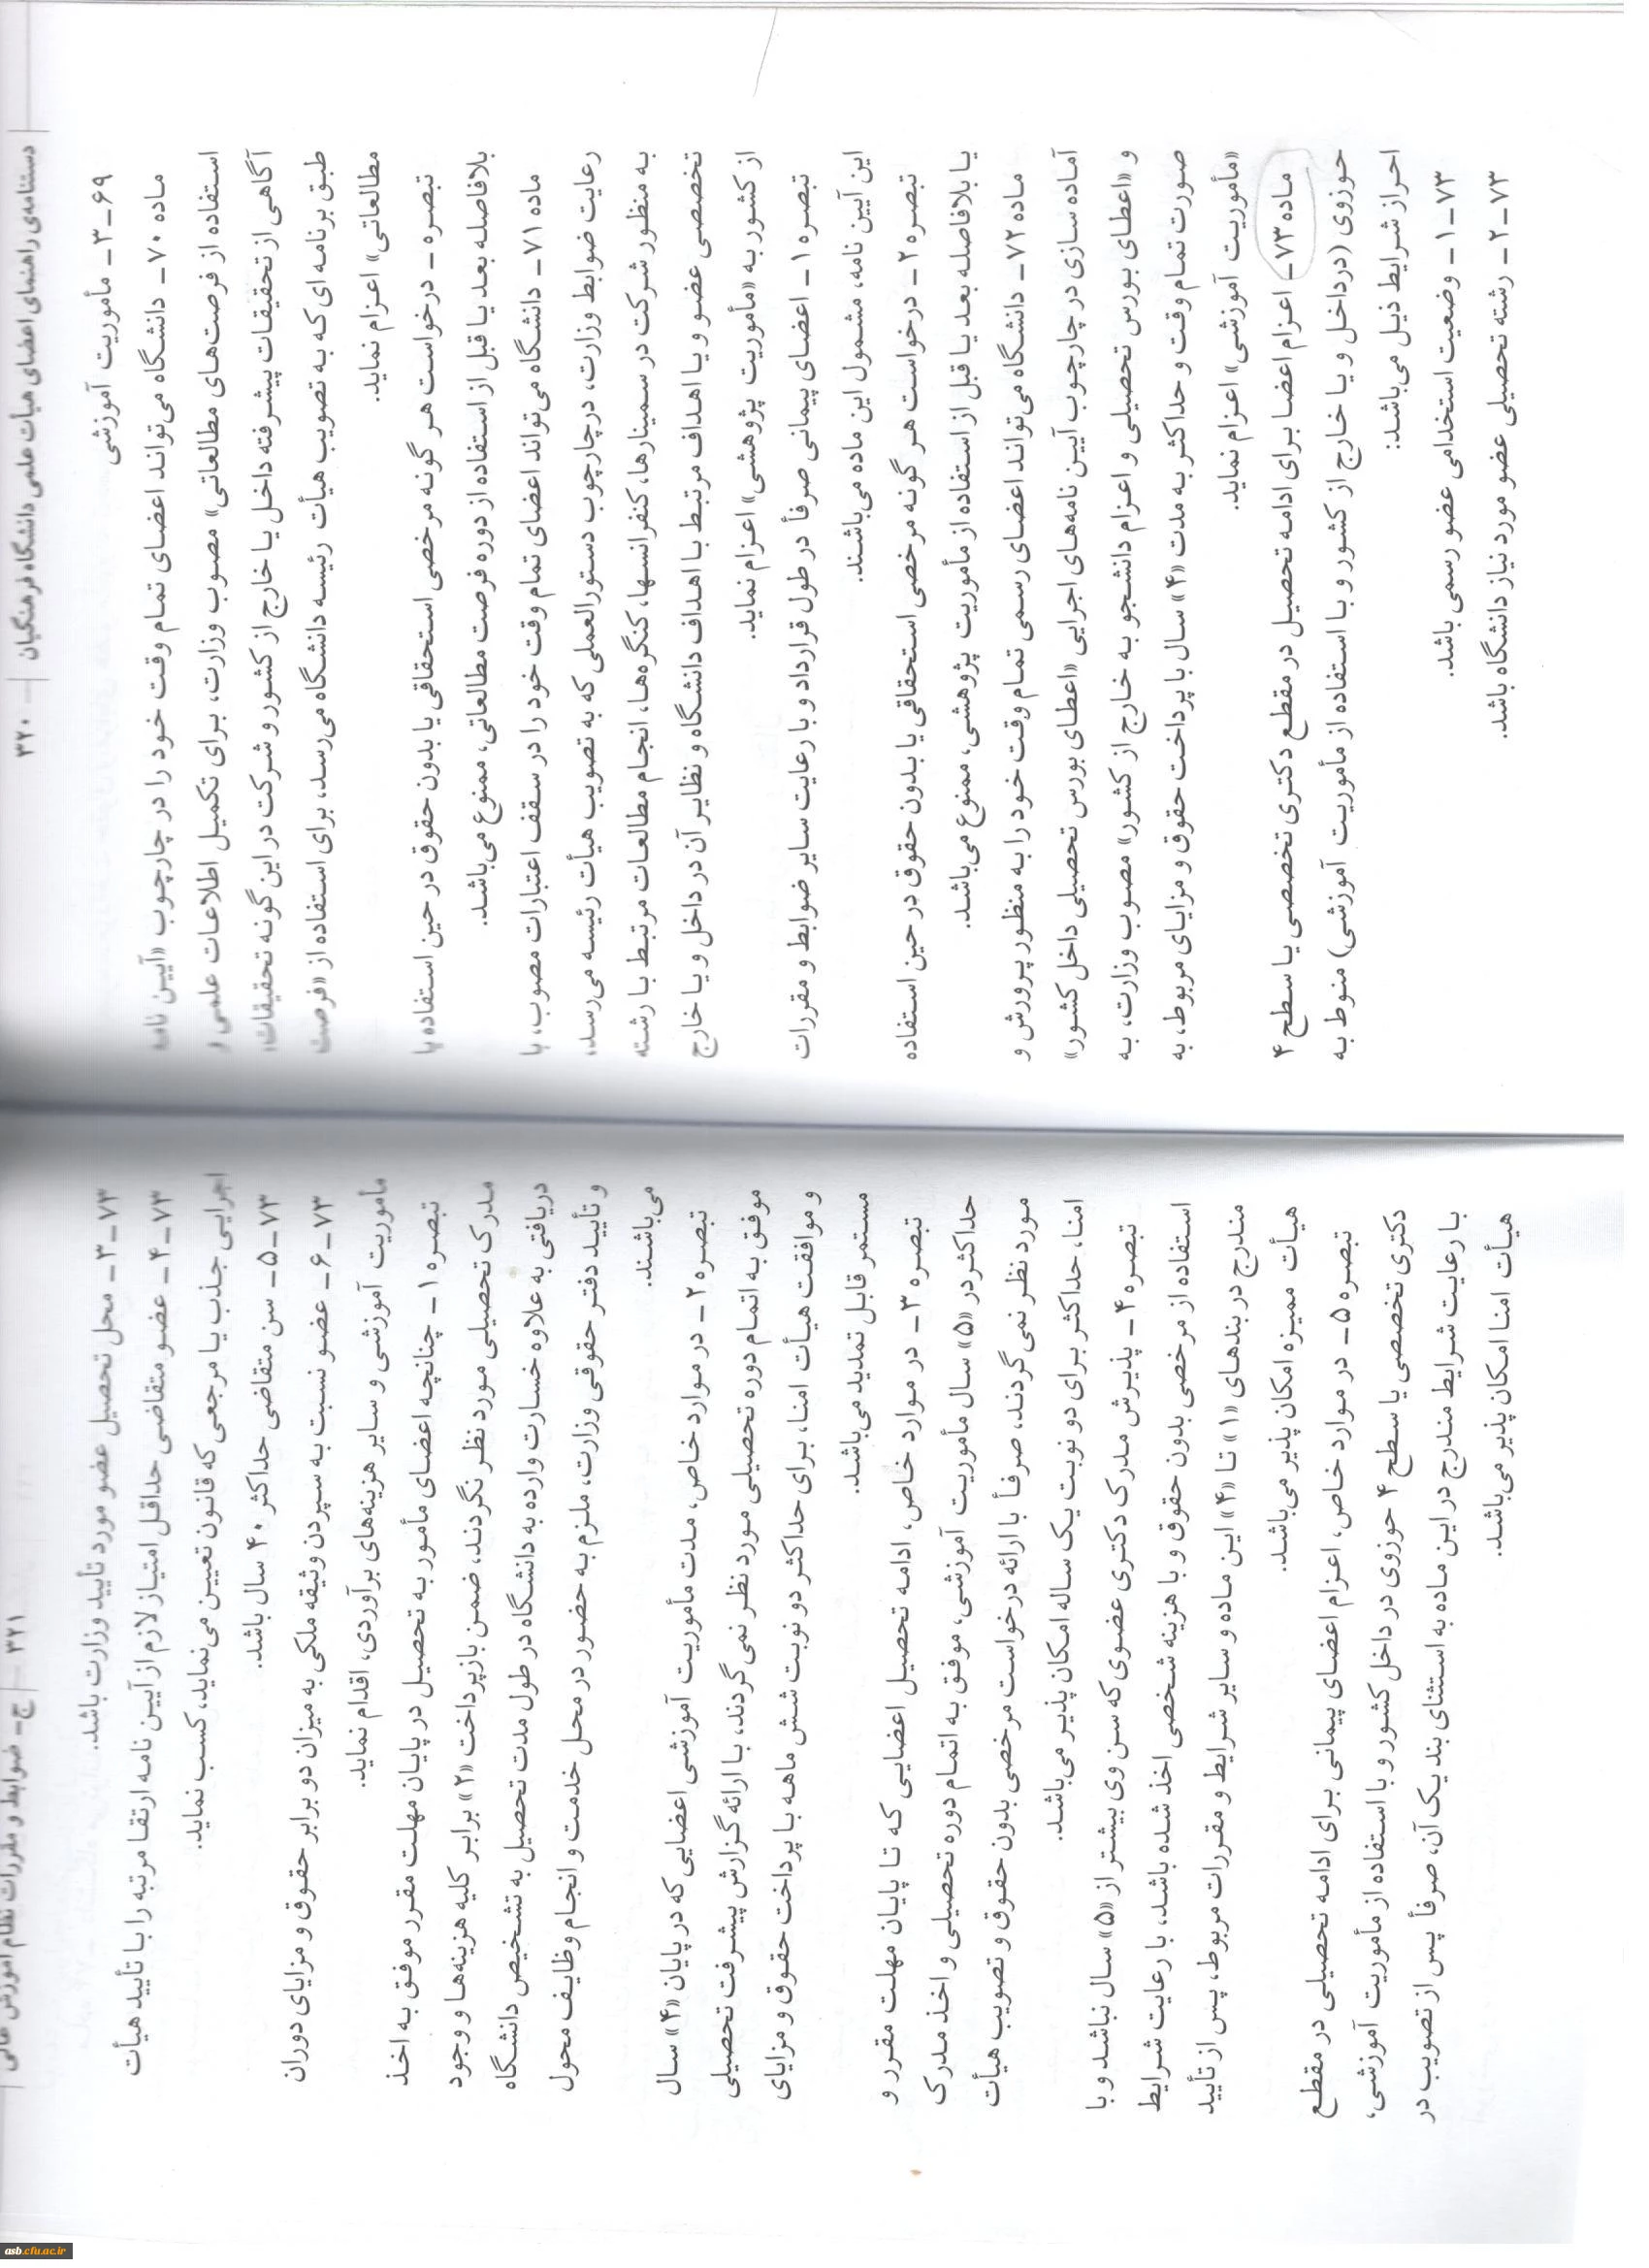 ۳۲۰ دستنامه‌ی راهنمای اعضای هیأت علمی دانشگاه فرهنگیان
۶۹ـ۳ـ مأموریت آموزشی
ماده ۷۰ـ دانشگاه می‌تواند اعضای تمام وقت خود را در چارچوب «آیین نامه
استفاده از فرصت‌های مطالعاتی» مصوب وزارت، برای تکمیل اطلاعات علمی و
آگاهی از تحقیقات پیشرفته داخل یا خارج از کشور و شرکت در این گونه تحقیقات،
طبق برنامه ای که به تصویب هیأت رئیسه دانشگاه می‌رسد، برای استفاده از «فرصت
مطالعاتی» اعزام نماید.
تبصره ـ درخواست هر گونه مرخصی استحقاقی یا بدون حقوق در حین استفاده یا
بلافاصله بعد یا قبل از استفاده از دوره فرصت مطالعاتی، ممنوع می‌باشد.
ماده ۷۱ـ دانشگاه می‌تواند اعضای تمام وقت خود را در سقف اعتبارات مصوب، با
رعایت ضوابط وزارت، درچارچوب دستورالعملی که به تصویب هیأت رئیسه می‌رسد،
به منظور شرکت در سمینارها، کنفرانسها، کنگره‌ها، انجام مطالعات مرتبط با رشته
تخصصی عضو و یا اهداف مرتبط با اهداف دانشگاه و نظایر آن در داخل و یا خارج
از کشور به «مأموریت پژوهشی» اعزام نماید.
تبصره ۱ـ اعضای پیمانی صرفاً در طول قرارداد و با رعایت سایر ضوابط و مقررات
این آیین نامه، مشمول این ماده می‌باشند.
تبصره ۲ـ درخواست هر گونه مرخصی استحقاقی یا بدون حقوق در حین استفاده
یا بلافاصله بعد یا قبل از استفاده از مأموریت پژوهشی، ممنوع می‌باشد.
ماده ۷۲ـ دانشگاه می‌تواند اعضای رسمی تمام وقت خود را به منظور پرورش و
آماده سازی در چارچوب آیین نامه‌های اجرایی «اعطای بورس تحصیلی داخل کشور»
و «اعطای بورس تحصیلی و اعزام دانشجو به خارج از کشور» مصوب وزارت، به
صورت تمام وقت و حداکثر به مدت «۴» سال با پرداخت حقوق و مزایای مربوط، به
«مأموریت آموزشی» اعزام نماید.
ماده ۷۳ـ اعزام اعضا برای ادامه تحصیل در مقطع دکتری تخصصی یا سطح ۴
حوزوی (درداخل و یا خارج از کشور و با استفاده از مأموریت آموزشی) منوط به
احراز شرایط ذیل می‌باشد:
۷۳ـ۱ـ وضعیت استخدامی عضو رسمی باشد.
۷۳ـ۲ـ رشته تحصیلی عضو مورد نیاز دانشگاه باشد.
ج- ضوابط و مقررات نظام آموزش عالی ۳۲۱
۷۳ـ۳ـ محل تحصیل عضو مورد تأیید وزارت باشد.
۷۳ـ۴ـ عضو متقاضی حداقل امتیاز لازم از آیین نامه ارتقا مرتبه را با تأیید هیأت
اجرایی جذب یا مرجعی که قانون تعیین می‌نماید، کسب نماید.
۷۳ـ۵ـ سن متقاضی حداکثر ۴۰ سال باشد.
۷۳ـ۶ـ عضو نسبت به سپردن وثیقه ملکی به میزان دو برابر حقوق و مزایای دوران
مأموریت آموزشی و سایر هزینه‌های برآوردی، اقدام نماید.
تبصره ۱ـ چنانچه اعضای مأمور به تحصیل در پایان مهلت مقرر موفق به اخذ
مدرک تحصیلی مورد نظر نگردند، ضمن بازپرداخت «۲» برابر کلیه هزینه‌ها و وجود
دریافتی به علاوه خسارت وارده به دانشگاه در طول مدت تحصیل به تشخیص دانشگاه
و تأیید دفتر حقوقی وزارت، ملزم به حضور در محل خدمت و انجام وظایف محول
می‌باشند.
تبصره ۲ـ در موارد خاص، مدت مأموریت آموزشی اعضایی که در پایان «۴» سال
موفق به اتمام دوره تحصیلی مورد نظر نمی گردند، با ارائه گزارش پیشرفت تحصیلی
و موافقت هیأت امنا، برای حداکثر دو نوبت شش ماهه با پرداخت حقوق و مزایای
مستمر قابل تمدید می‌باشد.
تبصره ۳ـ در موارد خاص، ادامه تحصیل اعضایی که تا پایان مهلت مقرر و
حداکثر در «۵» سال مأموریت آموزشی، موفق به اتمام دوره تحصیلی و اخذ مدرک
مورد نظر نمی گردند، صرفاً با ارائه درخواست مرخصی بدون حقوق و تصویب هیأت
امنا، حداکثر برای دو نوبت یک ساله امکان پذیر می‌باشد.
تبصره ۴ـ پذیرش مدرک دکتری عضوی که سن وی بیشتر از «۵» سال نباشد و با
استفاده از مرخصی بدون حقوق و با هزینه شخصی اخذ شده باشد، با رعایت شرایط
مندرج در بندهای «۱» تا «۴» این ماده و سایر شرایط و مقررات مربوط، پس از تأیید
هیأت ممیزه امکان پذیر می‌باشد.
تبصره ۵ـ در موارد خاص، اعزام اعضای پیمانی برای ادامه تحصیلی در مقطع
دکتری تخصصی یا سطح ۴ حوزوی در داخل کشور و با استفاده از مأموریت آموزشی،
با رعایت شرایط مندرج در این ماده به استثنای بند یک آن، صرفاً پس از تصویب در
هیأت امنا امکان پذیر می‌باشد.
asb.cfu.ac.ir